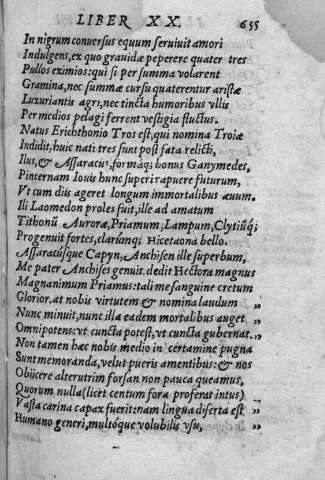 LIBER XX. 655
In nigrum conuersus equum seruiuit amori
Indulgens, ex quo grauidæ peperere quater tres
Pullos eximios: qui si per summa volarent
Gramina, nec summæ cursu quaterentur aristæ
Luxuriantis agri, nec tincta humoribus vllis
Per medios pelagi ferrent vestigia fluctus.
Natus Erichthonio Tros est, qui nomina Troiæ
Indidit, huic nati tres sunt post fata relicti,
Ilus, & Assaracus, formáq; bonus Ganymedes,
Pincernam Ioui hunc superi rapuere futurum,
Vt cum diis ageret longum immortalibus æuum.
Ili Laomedon proles fuit, ille ad amatum
Tithonũ Auroræ, Priamum, Lampum, Clytiũq;
Progenuit fortes, clarumq; Hicetaona bello.
Assaracusque Capyn, Anchisen ille superbum,
Me pater Anchises genuit. dedit Hectora magnus
Magnanimum Priamus: tali me sanguine cretum
Glorior. at nobis virtutem & nomina laudum „
Nunc minuit, nunc illa eadem mortalibus auget „
Omnipotens: vt cuncta potest, vt cuncta gubernat. „
Non tamen hæc nobis medio in certamine pugnæ
Sunt memoranda, velut pueris amentibus: & nos
Obiicere alterutrim forsan non pauca queamus,
Quorum nulla (licet centum fora proferat intus)
Vasta carina capax fuerit: nam lingua diserta est „
Humano generi, multóque volubilis vsu, „